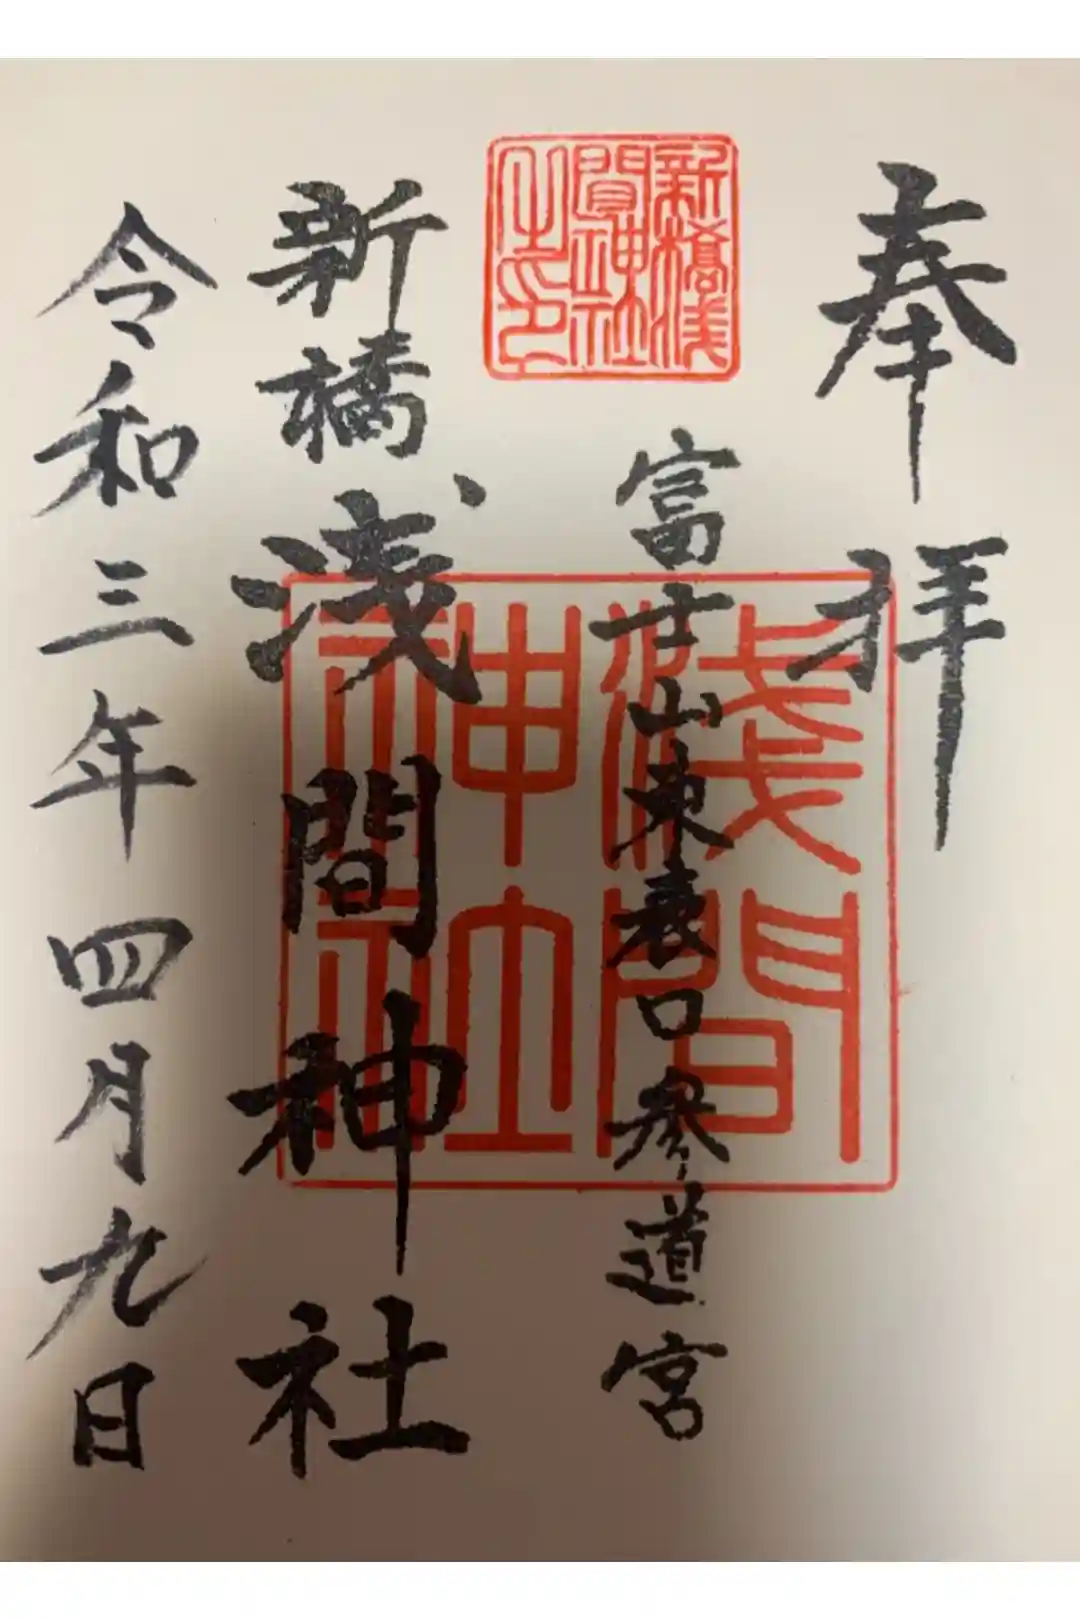 奉拝
新橋浅
間神社
之印
富士山東表口参道宮
浅間
神社
新橋浅間神社
令和三年四月九日